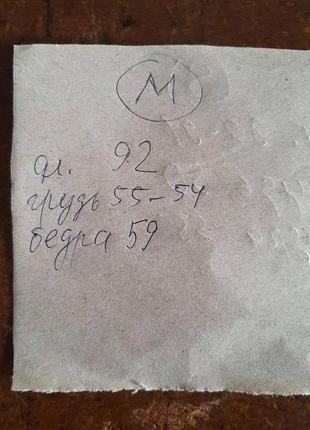 М
дл. 92
грудь 55-54
бедра 59